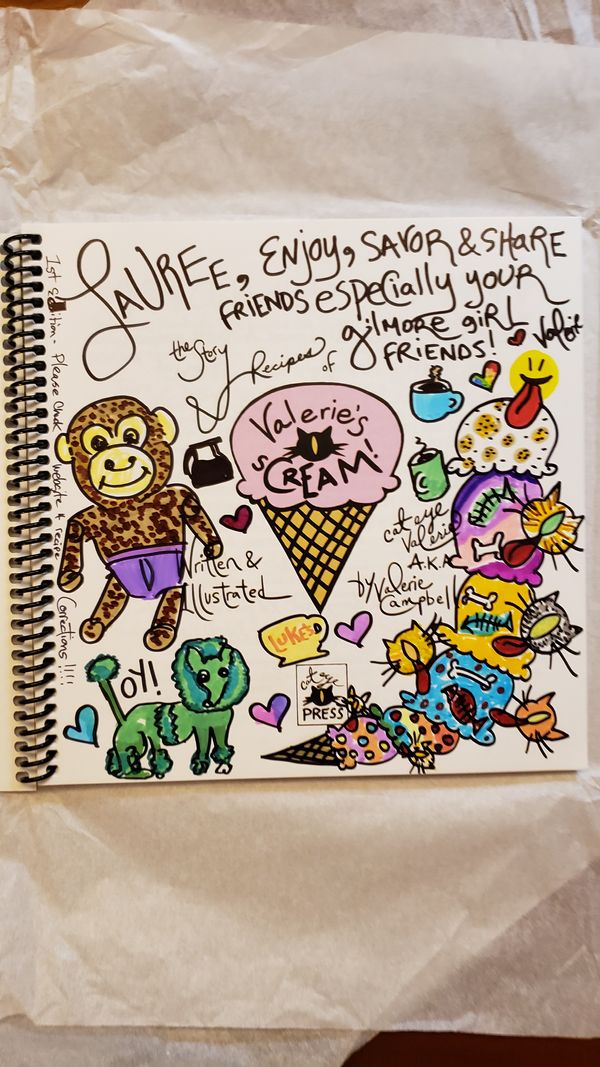 LAUREE, ENJOY, SAVOR & SHARE
FRIENDS ESPECIALLY YOUR
GILMORE GIRL
FRIENDS!
the Story
& Recipes of
Valerie's
SCREAM!
cat eye
Valerie
A.K.A
by Valerie
Campbell
Written &
Illustrated
LUKE'S
OY!
cat eye
PRESS
1st Edition - Please Check website 4 recipe Corrections!!!!